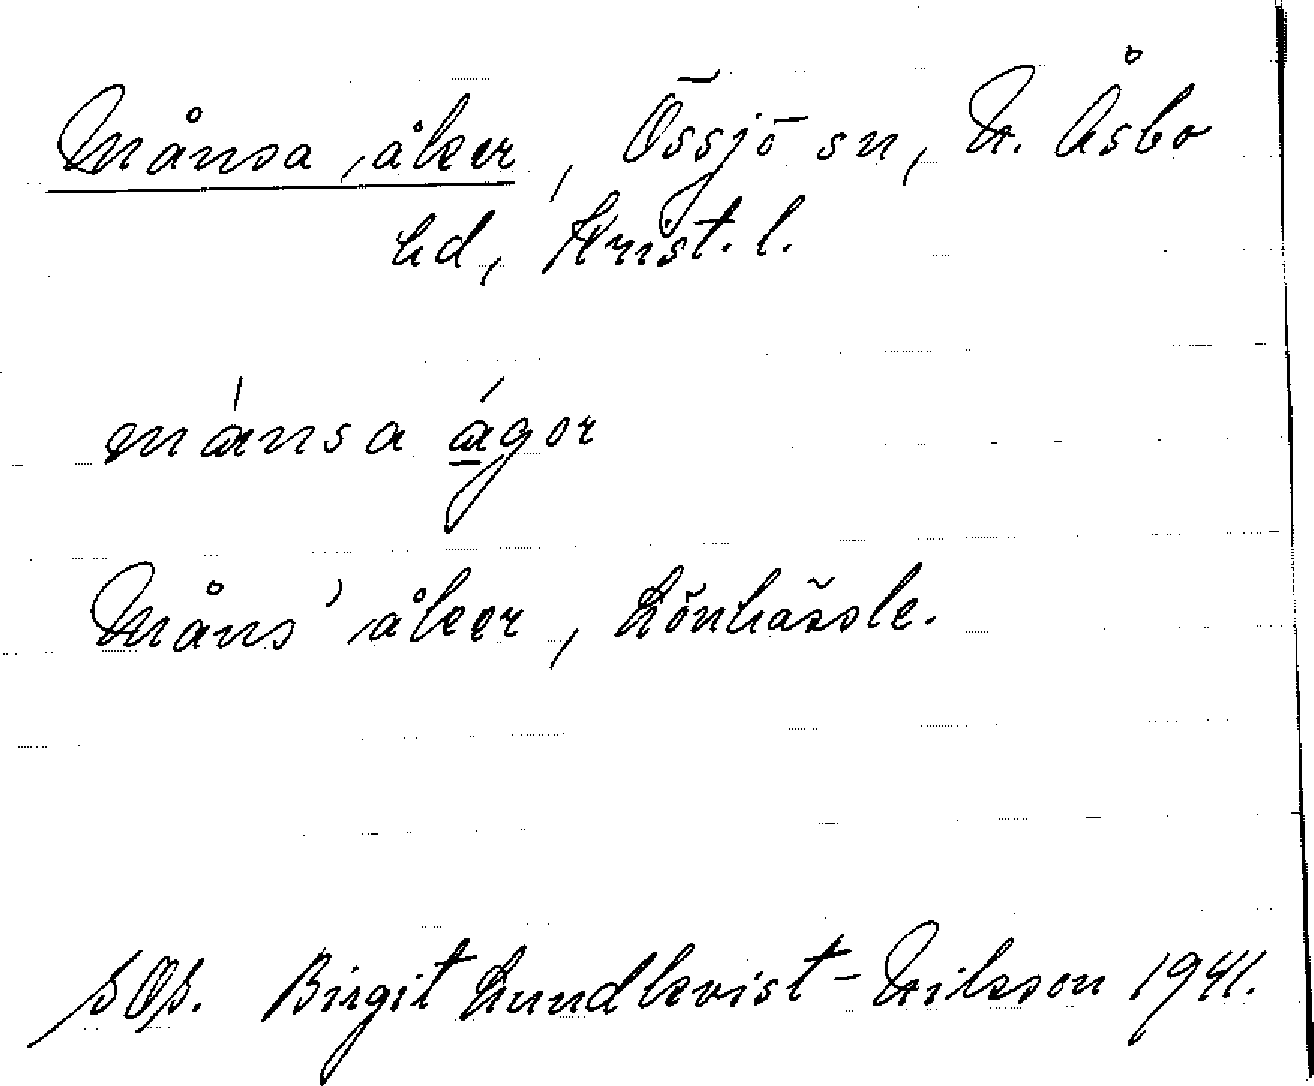 Månsa åker, Össjö sn, N. Åsbo
hd, Krist. l.
mánsa ágor
Måns' åker, Lönhässle.
Birgit Lundkvist-Nilsson 1941.